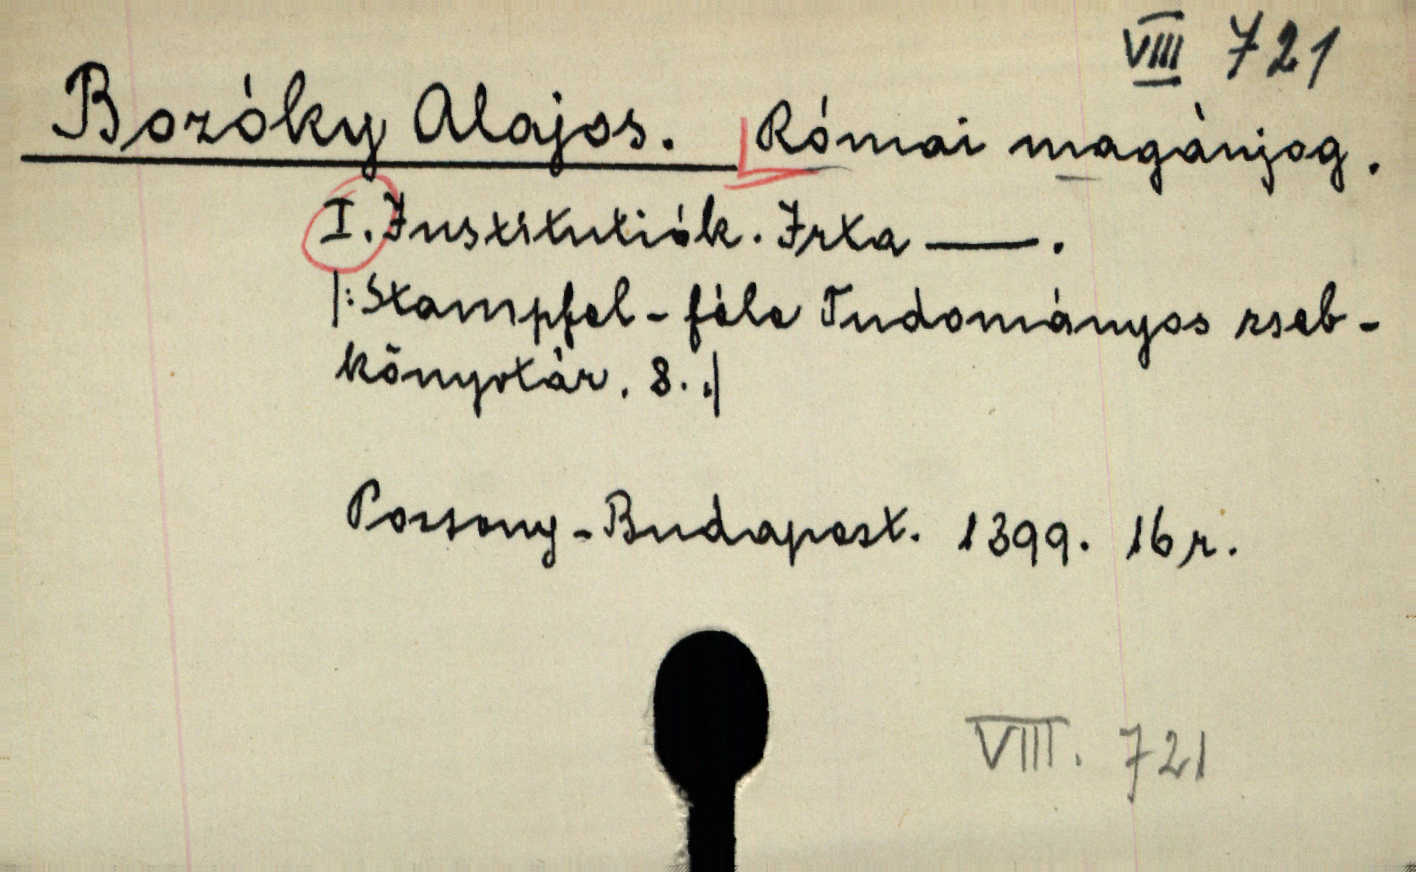 VIII 721
Bozóky Alajos. Római magánjog.
I. Institutiók. Irta —.
|: Stampfel-féle Tudományos zseb-
könyvtár. 8. :|
Pozsony-Budapest. 1899. 16 r.
VIII. 721